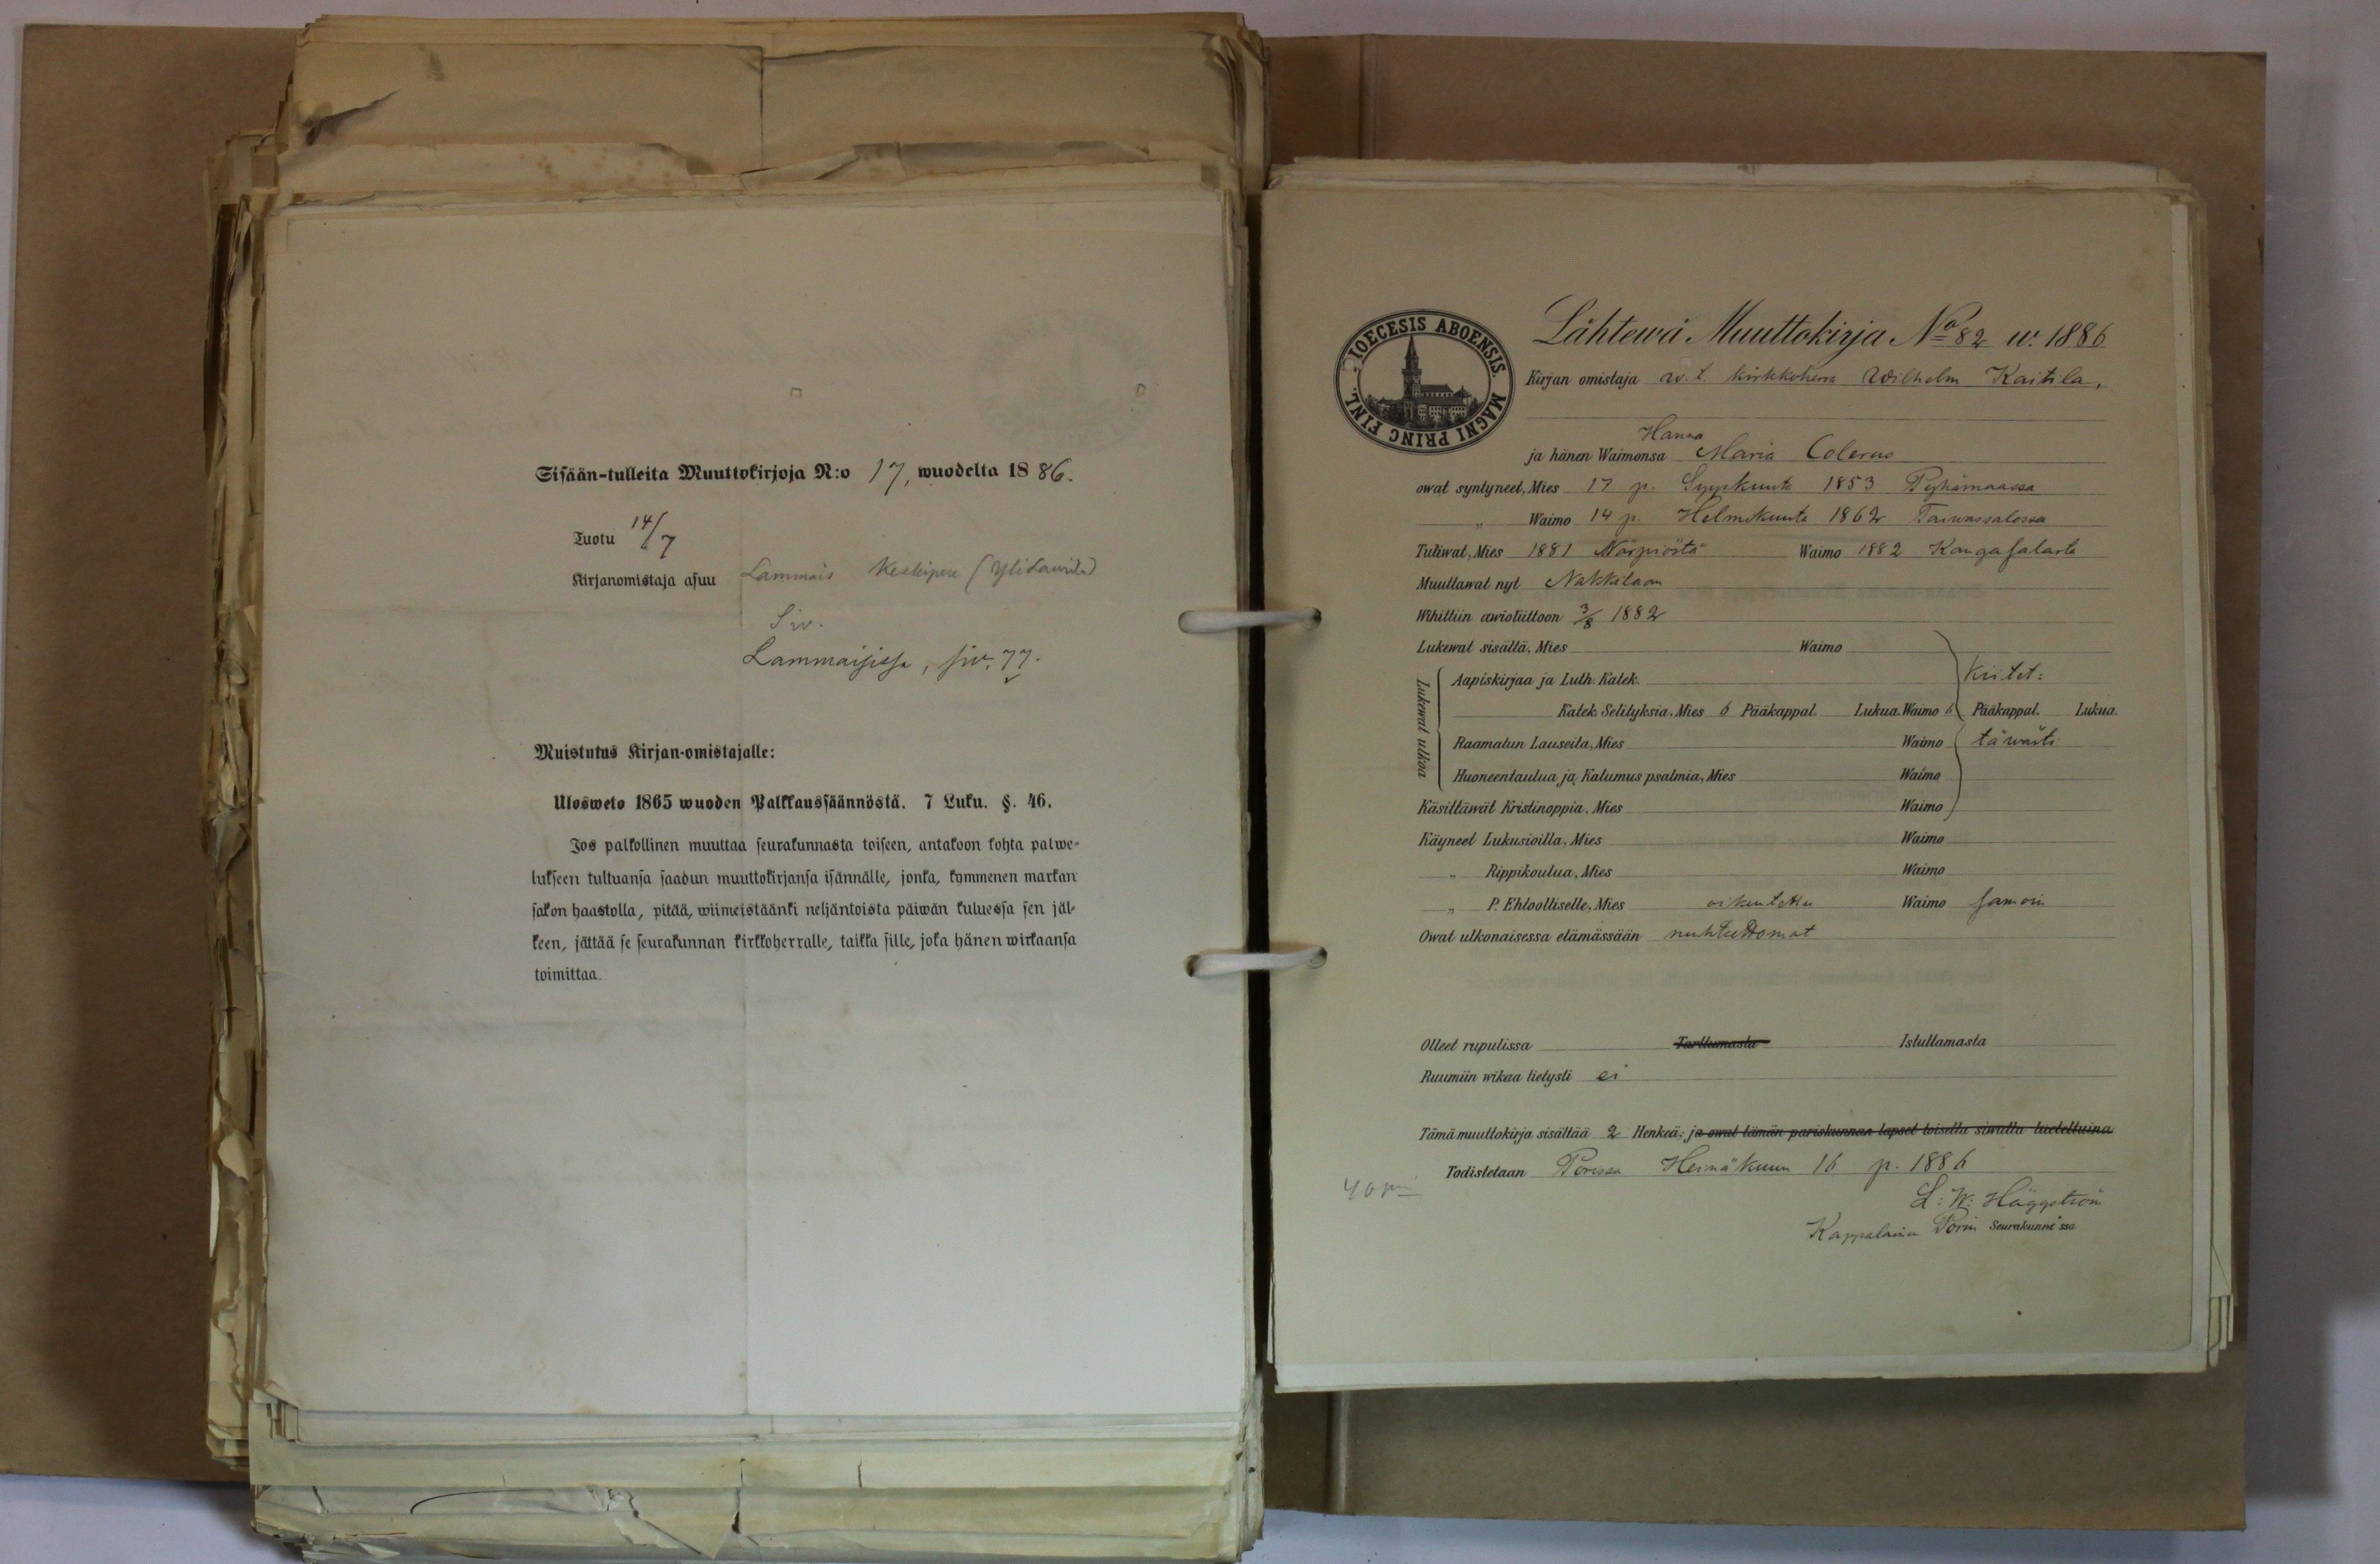 Sisään-tulleita Muuttokirjoja N:o 17, wuodelta 1886.
Tuotu 14/7
Kirjanomistaja asuu Lammais Keskipere (Yli Laurila)
Siv.
Lammaisissa, siv. 77.
Muistutus Kirjan-omistajalle:
Ulosweto 1865 wuoden Palkkaussäännöstä. 7 Luku. §. 46.
Jos palkollinen muuttaa seurakunnasta toiseen, antakoon kohta palwe-
lukseen tultuansa saadun muuttokirjansa isännälle, jonka, kymmenen markan
sakon haastolla, pitää, wiimeistäänki neljäntoista päiwän kuluessa sen jäl-
keen, jättää se seurakunnan kirkkoherralle, taikka sille, joka hänen wirkaansa
toimittaa.
DIOECESIS ABOENSIS. MAGNI PRINC FINL.
Lähtewä Muuttokirja No 82 w. 1886
Kirjan omistaja w. t. kirkkoherra Wilhelm Kaitila,
Hanna
ja hänen Waimonsa Maria Colerus
owat syntyneet, Mies 17 p. Syyskuuta 1853 Pyhämaassa
„ Waimo 14 p. Helmikuuta 1862 Taiwassalossa
Tuliwat, Mies 1881 Närpiöstä Waimo 1882 Kangasalasta
Muuttawat nyt Nakkilaan
Wihittiin awioliittoon 3/8 1882
Lukewat sisältä, Mies Waimo
Lukewat ulkoa
Aapiskirjaa ja Luth. Katek. Kiitet:
Katek. Selityksiä, Mies 6 Pääkappal. Lukua. Waimo 6 Pääkappal. Lukua.
Raamatun Lauseita, Mies Waimo täwästi
Huoneentaulua ja Katumus psalmia, Mies Waimo
Käsittäwät Kristinoppia, Mies Waimo
Käyneet Lukusioilla, Mies Waimo
„ Rippikoulua, Mies Waimo
„ P. Ehtoolliselle, Mies oikeutettu Waimo samoin
Owat ulkonaisessa elämässään nuhteettomat
Olleet rupulissa Tarttumasta Istuttamasta
Ruumiin wikaa tietysti ei
Tämä muuttokirja sisältää 2 Henkeä; ja owat tämän pariskunnan lapset toisella siwulla luetelluina
Todistetaan Porissa Heinäkuun 16 p. 1886
40 pni
L: W: Häggström
Kappalainen Porin Seurakunnassa